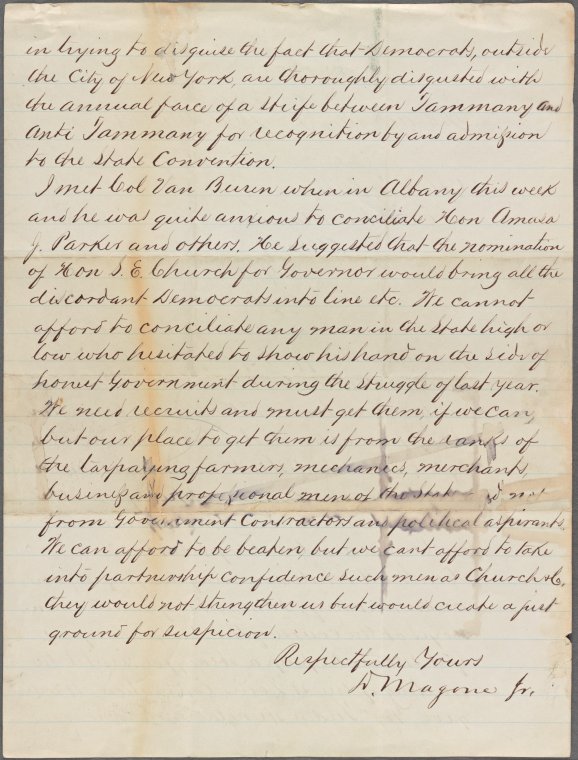 in trying to disguise the fact that Democrats, outside
the City of New York, are thoroughly disgusted with
the annual farce of a stife between Tammany and
Anti Tammany for recognition by and admission
to the State Convention.
I met Col Van Buren when in Albany this week
and he was quite anxious to conciliate Hon Amasa
J. Parker and others. He suggested that the nomination
of Hon S. E. Church for Governor would bring all the
discordant Democrats into line etc. We cannot
afford to conciliate any man in the State high or
low who hesitated to show his hand on the side of
honest Government during the struggle of last year.
We need recruits and must get them, if we can,
but our place to get them is from the ranks of
the taxpaying farmers, mechanics, merchants,
business and professional men of the State and not
from Government Contractors and political aspirants.
We can afford to be beaten, but we cant afford to take
into partnership confidence such men as Church &c,
they would not strengthen us but would create a just
ground for suspicion.
Respectfully Yours
D. Magone Jr.